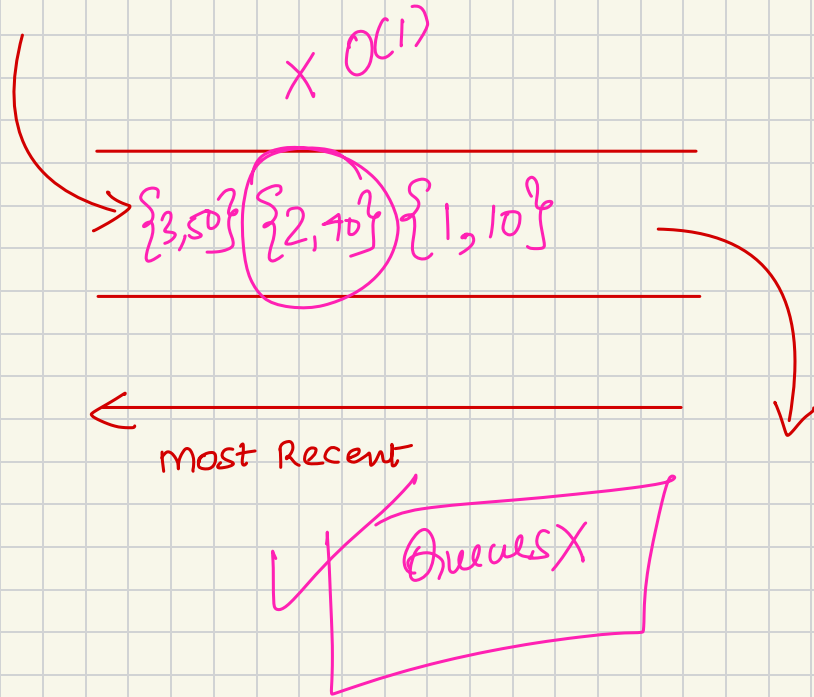 X O(1)
{3,50} {2,40} {1,10}
most Recent
Queues X